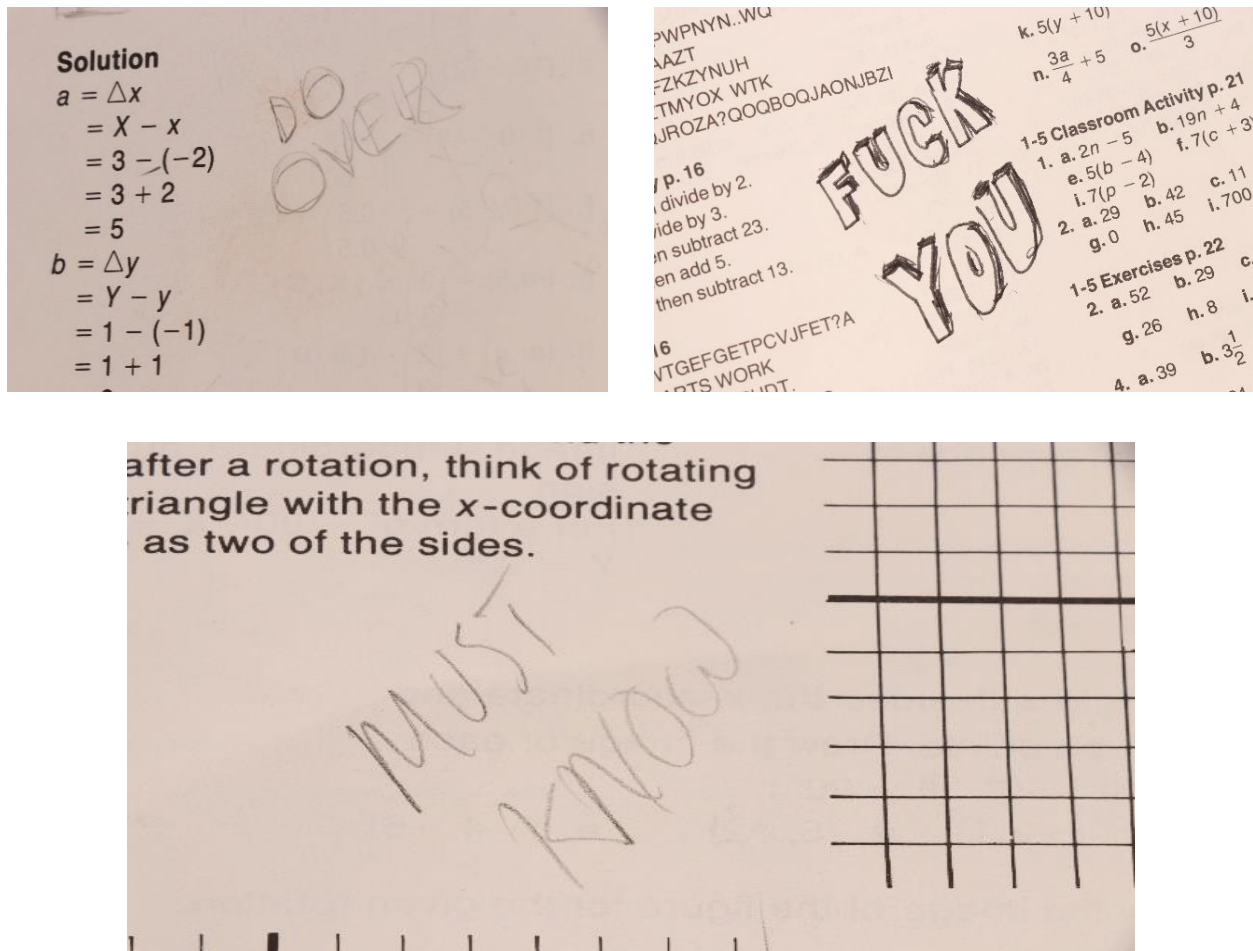 Solution
a = △x
= X − x
= 3 − (−2)
= 3 + 2
= 5
b = △y
= Y − y
= 1 − (−1)
= 1 + 1
DO
OVER
PWPNYN..WQ
AAZT
FZKZYNUH
LTMYOX WTK
QJROZA?QOQBOQJAONJBZI
p. 16
divide by 2.
vide by 3.
en subtract 23.
en add 5.
then subtract 13.
16
VTGEFGETPCVJFET?A
ARTS WORK
FUCK
YOU
k. 5(y + 10)
n. 3a/4 + 5 o. 5(x + 10)/3
1-5 Classroom Activity p. 21
1. a. 2n − 5 b. 19n + 4
e. 5(b − 4) f. 7(c + 3)
i. 7(p − 2)
2. a. 29 b. 42 c. 11
g. 0 h. 45 i. 700
1-5 Exercises p. 22
2. a. 52 b. 29 c.
g. 26 h. 8 i.
4. a. 39 b. 3 1/2
after a rotation, think of rotating
triangle with the x-coordinate
as two of the sides.
MUST
KNOW